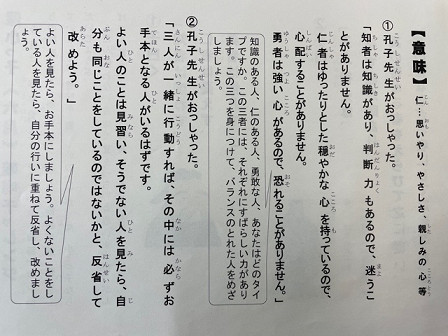 【意味】 仁…思いやり、やさしさ、親しみの心 等
①孔子先生がおっしゃった。
「知者は知識があり、判断力もあるので、迷うこ
とがありません。
仁者はゆったりとした穏やかな心を持っているので、
心配することがありません。
勇者は強い心があるので、恐れることがありません。」
知識のある人、仁のある人、勇敢な人、あなたはどのタイ
プですか。この三者には、それぞれにすばらしい力があり
ます。この三つを身につけて、バランスのとれた人をめざ
しましょう。
②孔子先生がおっしゃった。
「三人が一緒に行動すれば、その中には必ずお
手本となる人がいるはずです。
よい人のことは見習い、そうでない人を見たら、自
分も同じことをしているのではないかと、反省して
改めよう。」
よい人を見たら、お手本にしましょう。よくないことをし
ている人を見たら、自分の行いに重ねて反省し、改めまし
ょう。